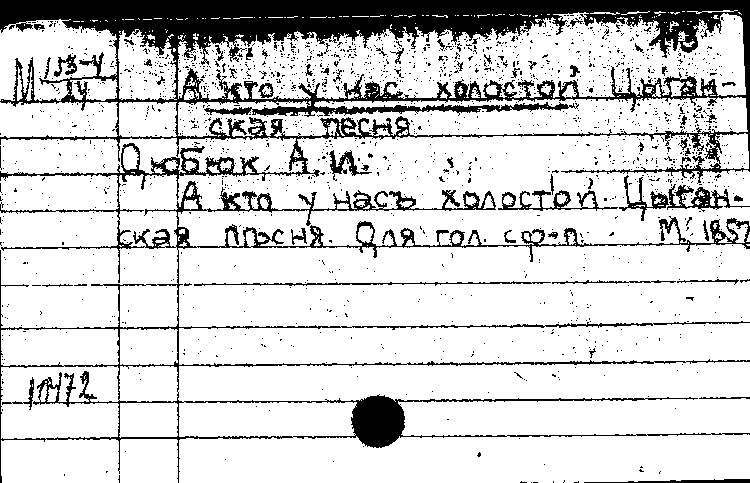 113
М 153-4
24
А кто у нас холостой. Цыган-
ская песня.
Дюбюк, А. И.
А кто у насъ холостой. Цыган-
ская пѣсня. Для гол. с ф-п. М., 1857